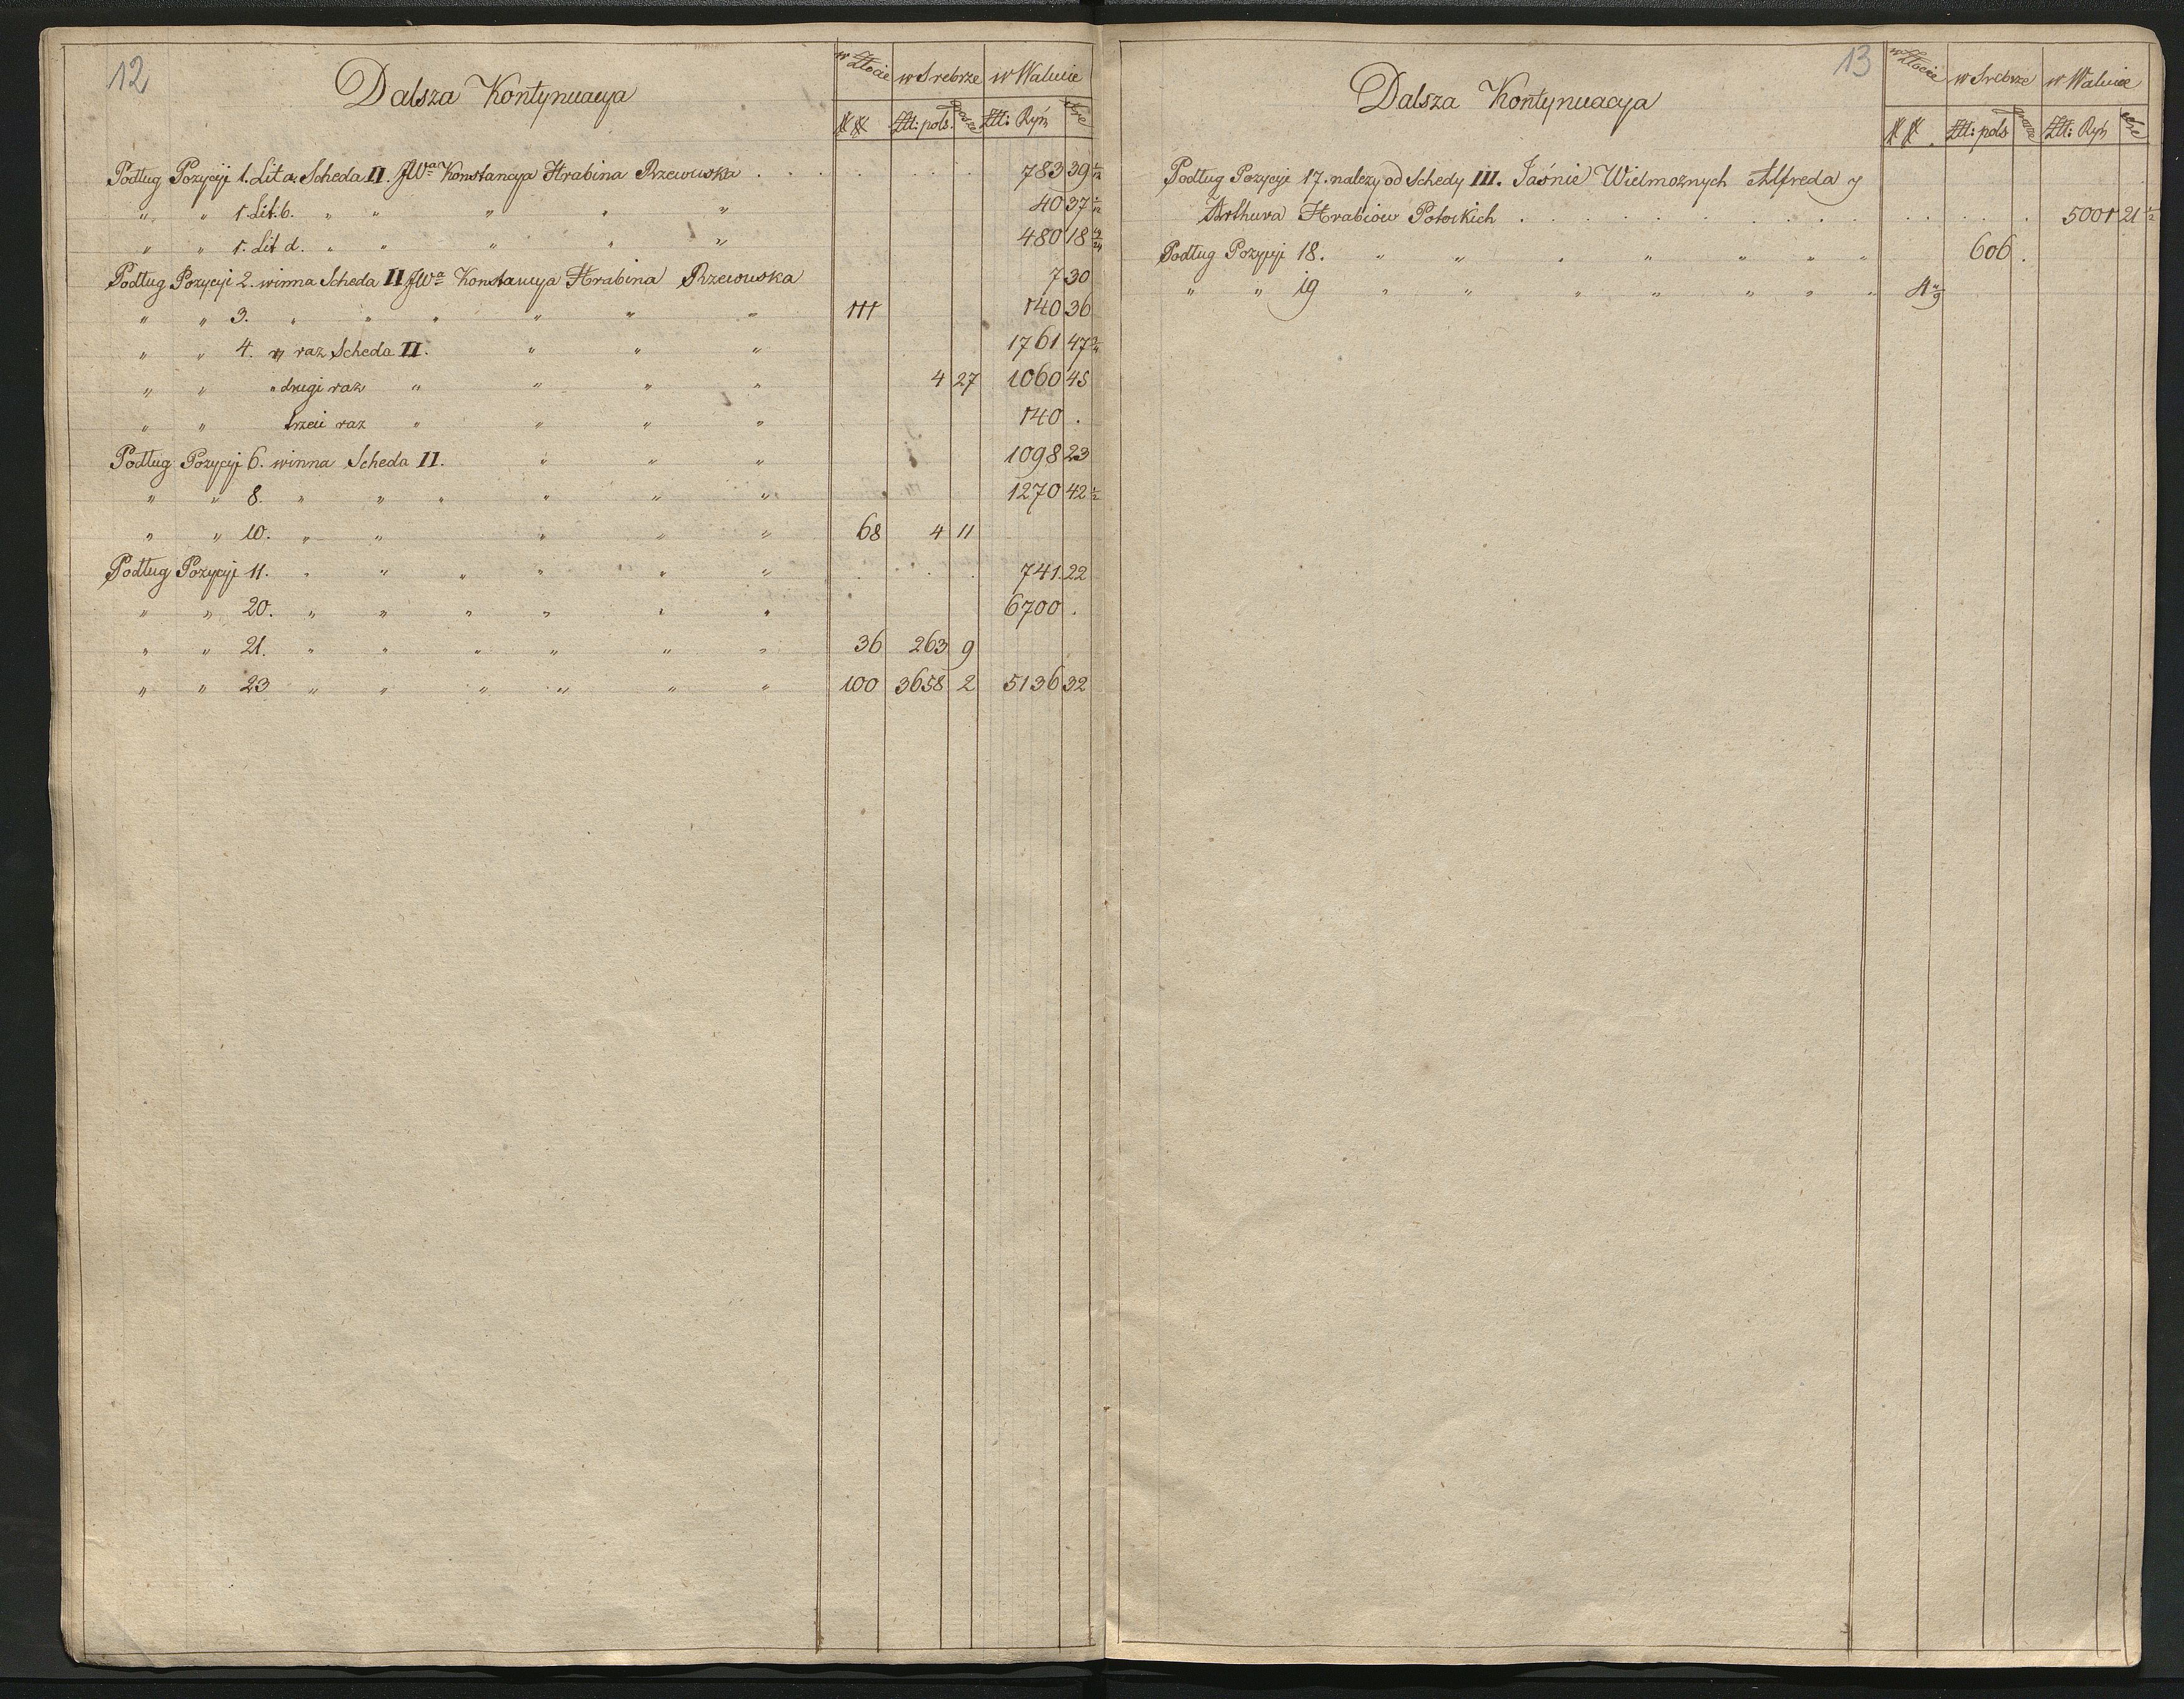 12
Dalsza Kontynuacya
w Złocie w Srebrze w Walucie
## Złt: pols. grosze Złt: Ryń xre
Podług Pozycyji 1. Lit a. Scheda II. JWa Konstancya Hrabina Rzewuska . . . . . . . 783 39
„ „ 1. Lit. b. „ „ „ „ „ 40 37
„ „ 1. Lit d. „ „ „ „ „ 480 18
Podług Pozycyji 2. winna Scheda II JWa Konstancya Hrabina Rzewuska 7 30
„ „ 3. „ „ „ „ „ „ 111 140 36
„ „ 4. raz Scheda II. „ „ „ 1761 47
„ „ „ drugi raz „ „ „ „ 4 27 1060 45
„ „ trzeci raz „ „ „ „ 140 .
Podług Pozycyji 6. winna Scheda II. „ „ „ 1098 23
„ „ 8. „ „ „ „ „ „ 1270 42 1/2
„ „ 10. „ „ „ „ „ 68 4 11
Podług Pozycyji 11. „ „ „ „ „ „ . . . 741 22
„ „ 20. „ „ „ „ „ „ 6700 .
„ „ 21. „ „ „ „ „ „ 36 263 9
„ „ 23 „ „ „ „ „ „ 100 3658 2 5136 32
13
Dalsza Kontynuacya
w Złocie w Srebrze w Walucie
## . Złt: pols grosze Złt: Ryń xre
Podług Pozycyji 17. nalezy od Schedy III. Jaśnie Wielmoznych Alfreda y
Arthura Hrabiow Potockich . . . . . . . . . . . 5001 21 1/2
Podług Pozycyji 18. „ „ „ „ „ „ „ 606 .
„ „ 19 „ „ „ „ „ „ „ 4